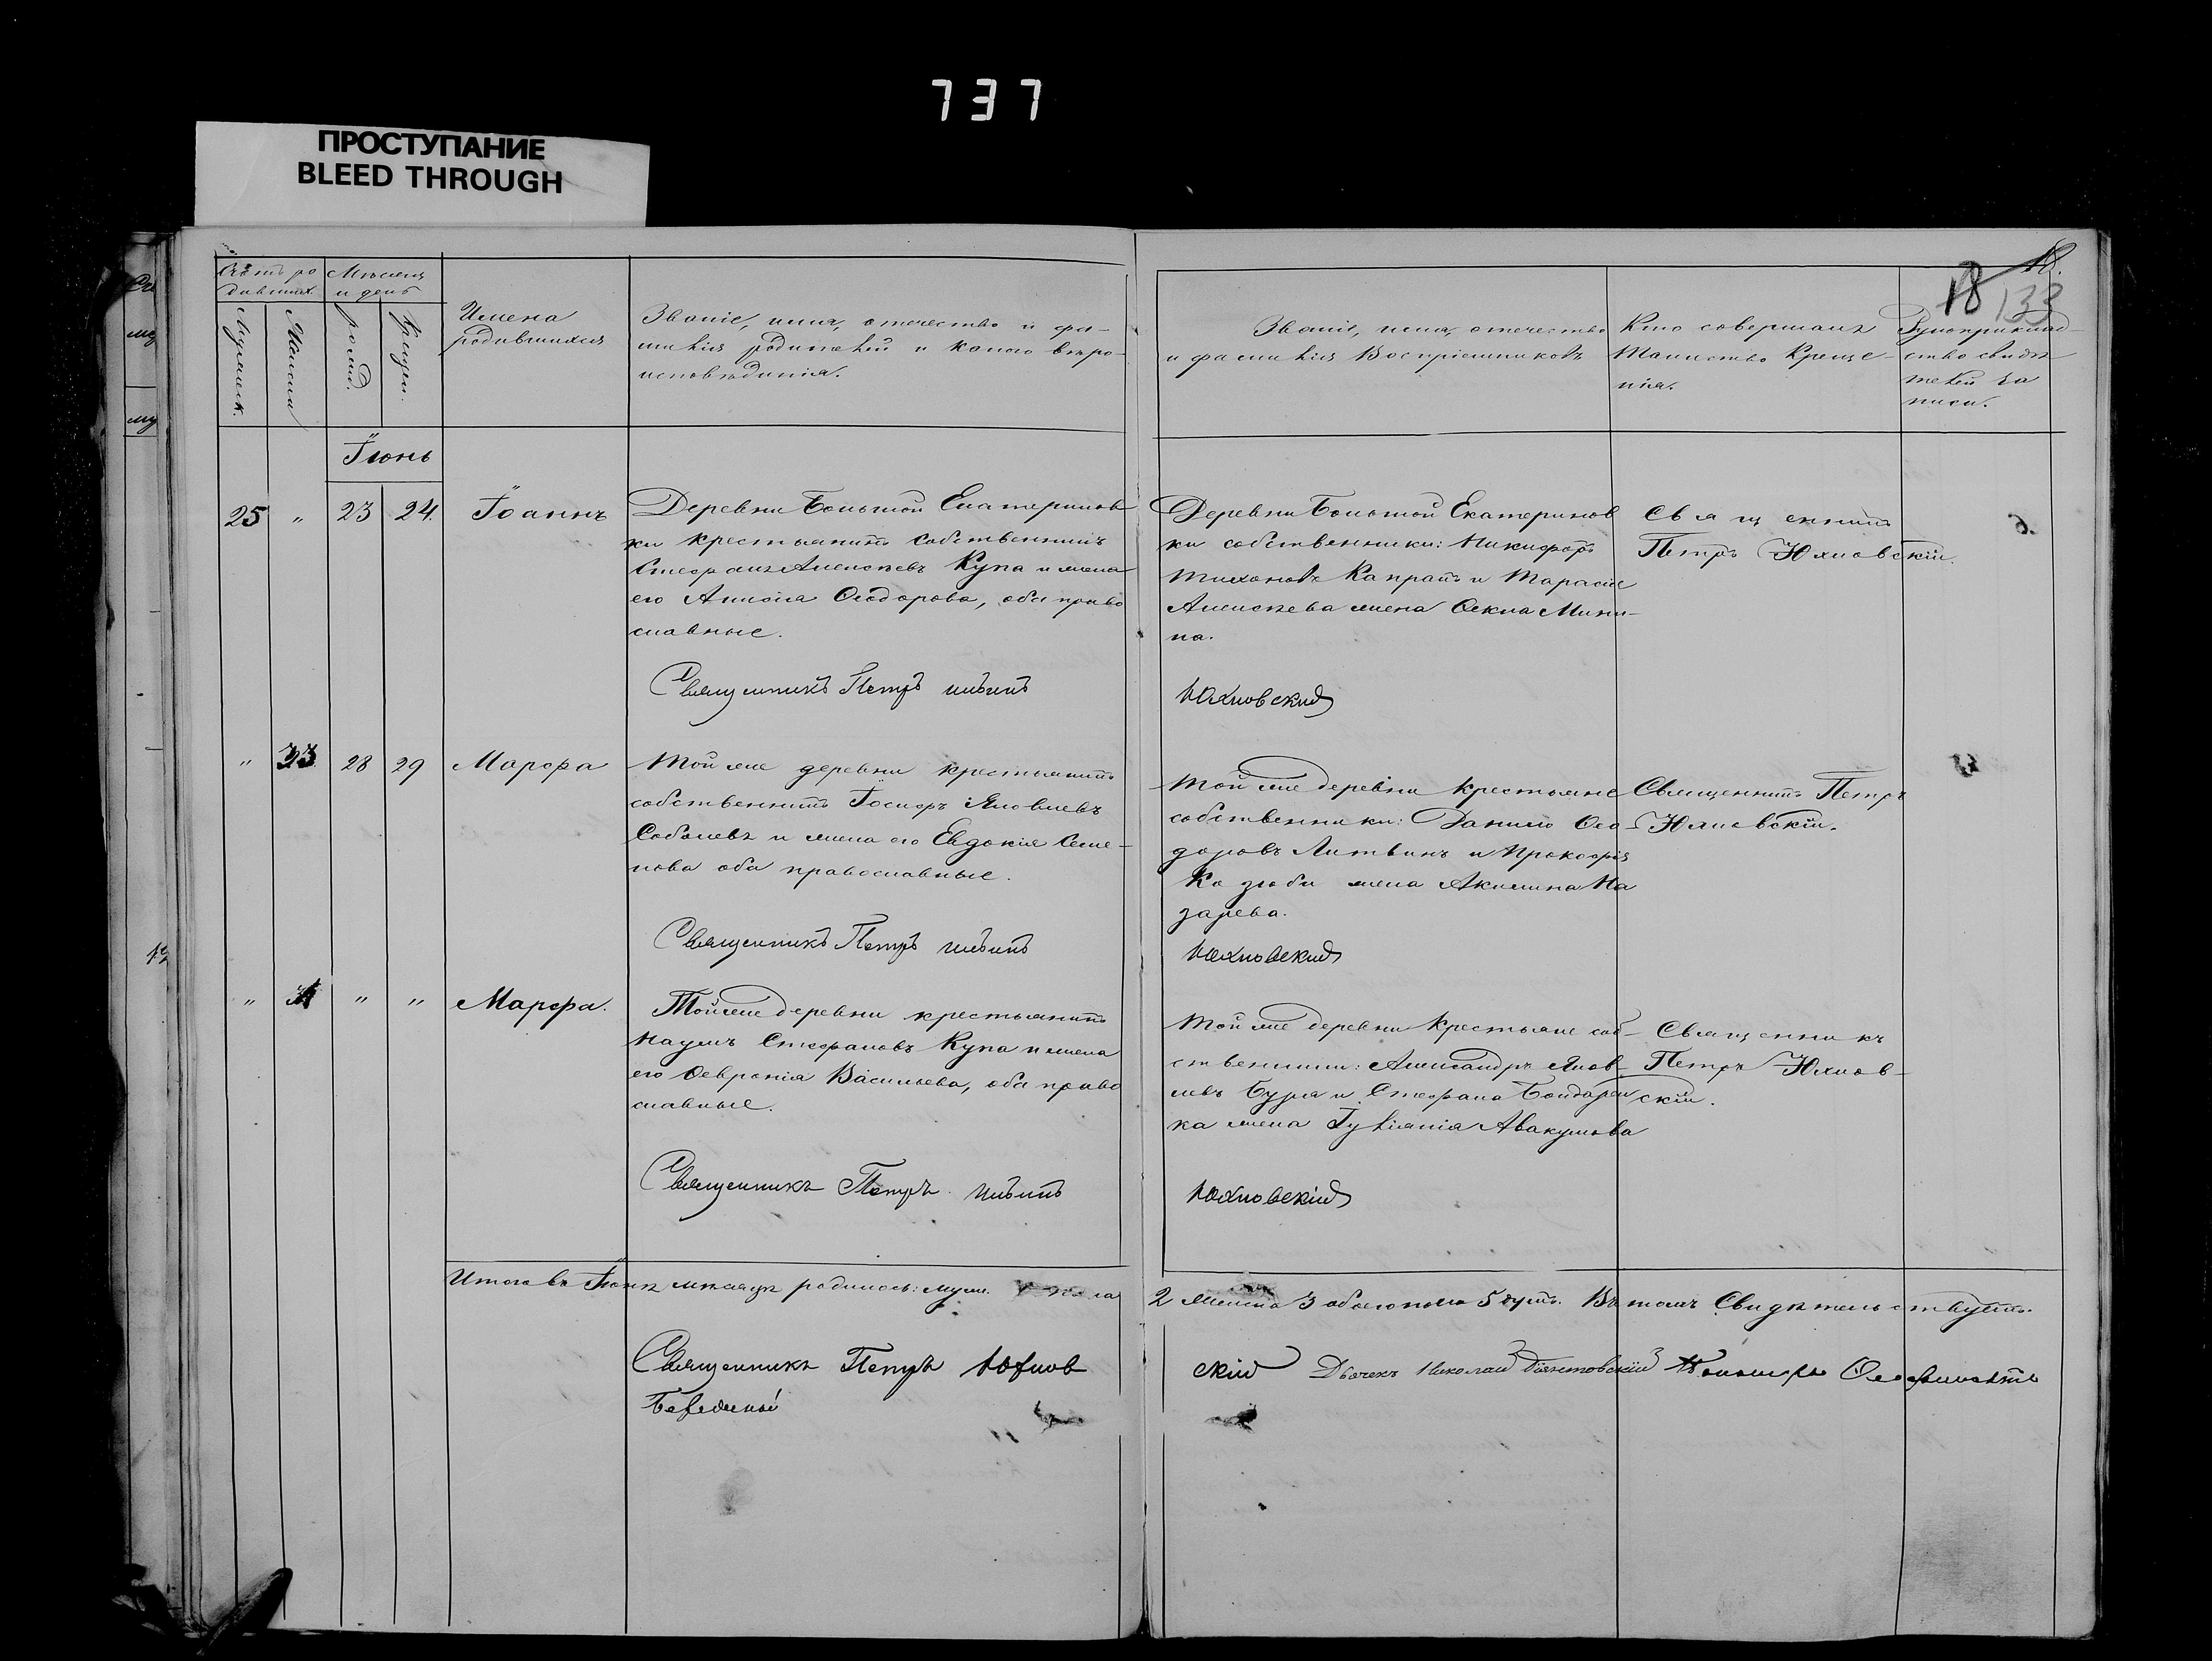 737
ПРОСТУПАНИЕ
BLEED THROUGH
18 18.
133
Счетъ ро
дившихъ.
Мѣсяцъ
и день
Мужеска.
Женска
рожд.
Крещен.
Имена
родившихся
Званіе, имя, отечество и фа-
милія родителей и какого вѣро-
исповѣданія.
Званіе, имя, отечество
и фамилія Воспріемниковъ
Кто совершалъ
Таинство Креще-
нія.
Рукоприклад-
ство свидѣ
телей за
писи.
Іюнь
25 " 23 24. Іоаннъ
Деревни Большой Екатеринов
ки крестьянинъ собственникъ
Стефанъ Алексѣевъ Купа и жена
его Анисія Ѳеодорова, оба право
славные.
Деревни Большой Екатеринов
ки собственники: Никифоръ
Тихоновъ Капранъ и Тарасія
Алексѣева жена Ѳекла Мини-
на.
Священникъ
Петръ Юхновскій.
Священникъ Петръ
Юхновский
" 23 28 29 Марѳа
Той же деревни крестьянинъ
собственникъ Іосифъ Яковлевъ
Соболевъ и жена его Евдокія Семе-
нова оба православные.
Той же деревни крестьяне
собственники: Данило Ѳео-
доровъ Литвинъ и Прокофія
Козюби жена Акилина На
зарева.
Священникъ Петръ
Юхновскій.
Священникъ Петръ
Юхновский
" " " Марѳа.
Той же деревни крестьянинъ
Наумъ Стефановъ Купа и жена
его Ѳевронія Васильева, оба право
славные.
Той же деревни крестьяне соб-
ственники: Александръ Яков-
левъ Бура и Стефана Бондарен
ка жена Іуліанія Авакумова
Священникъ
Петръ Юхнов-
скій.
Священникъ Петръ
Юхновскій
Итого въ Іюнѣ мѣсяцѣ родилось: муж. пола
2 женска 3 обоего пола 5 душъ. Въ томъ Свидѣтельствуетъ.
Священникъ Петръ Юхнов
скій Дьячекъ Николай Пономарь